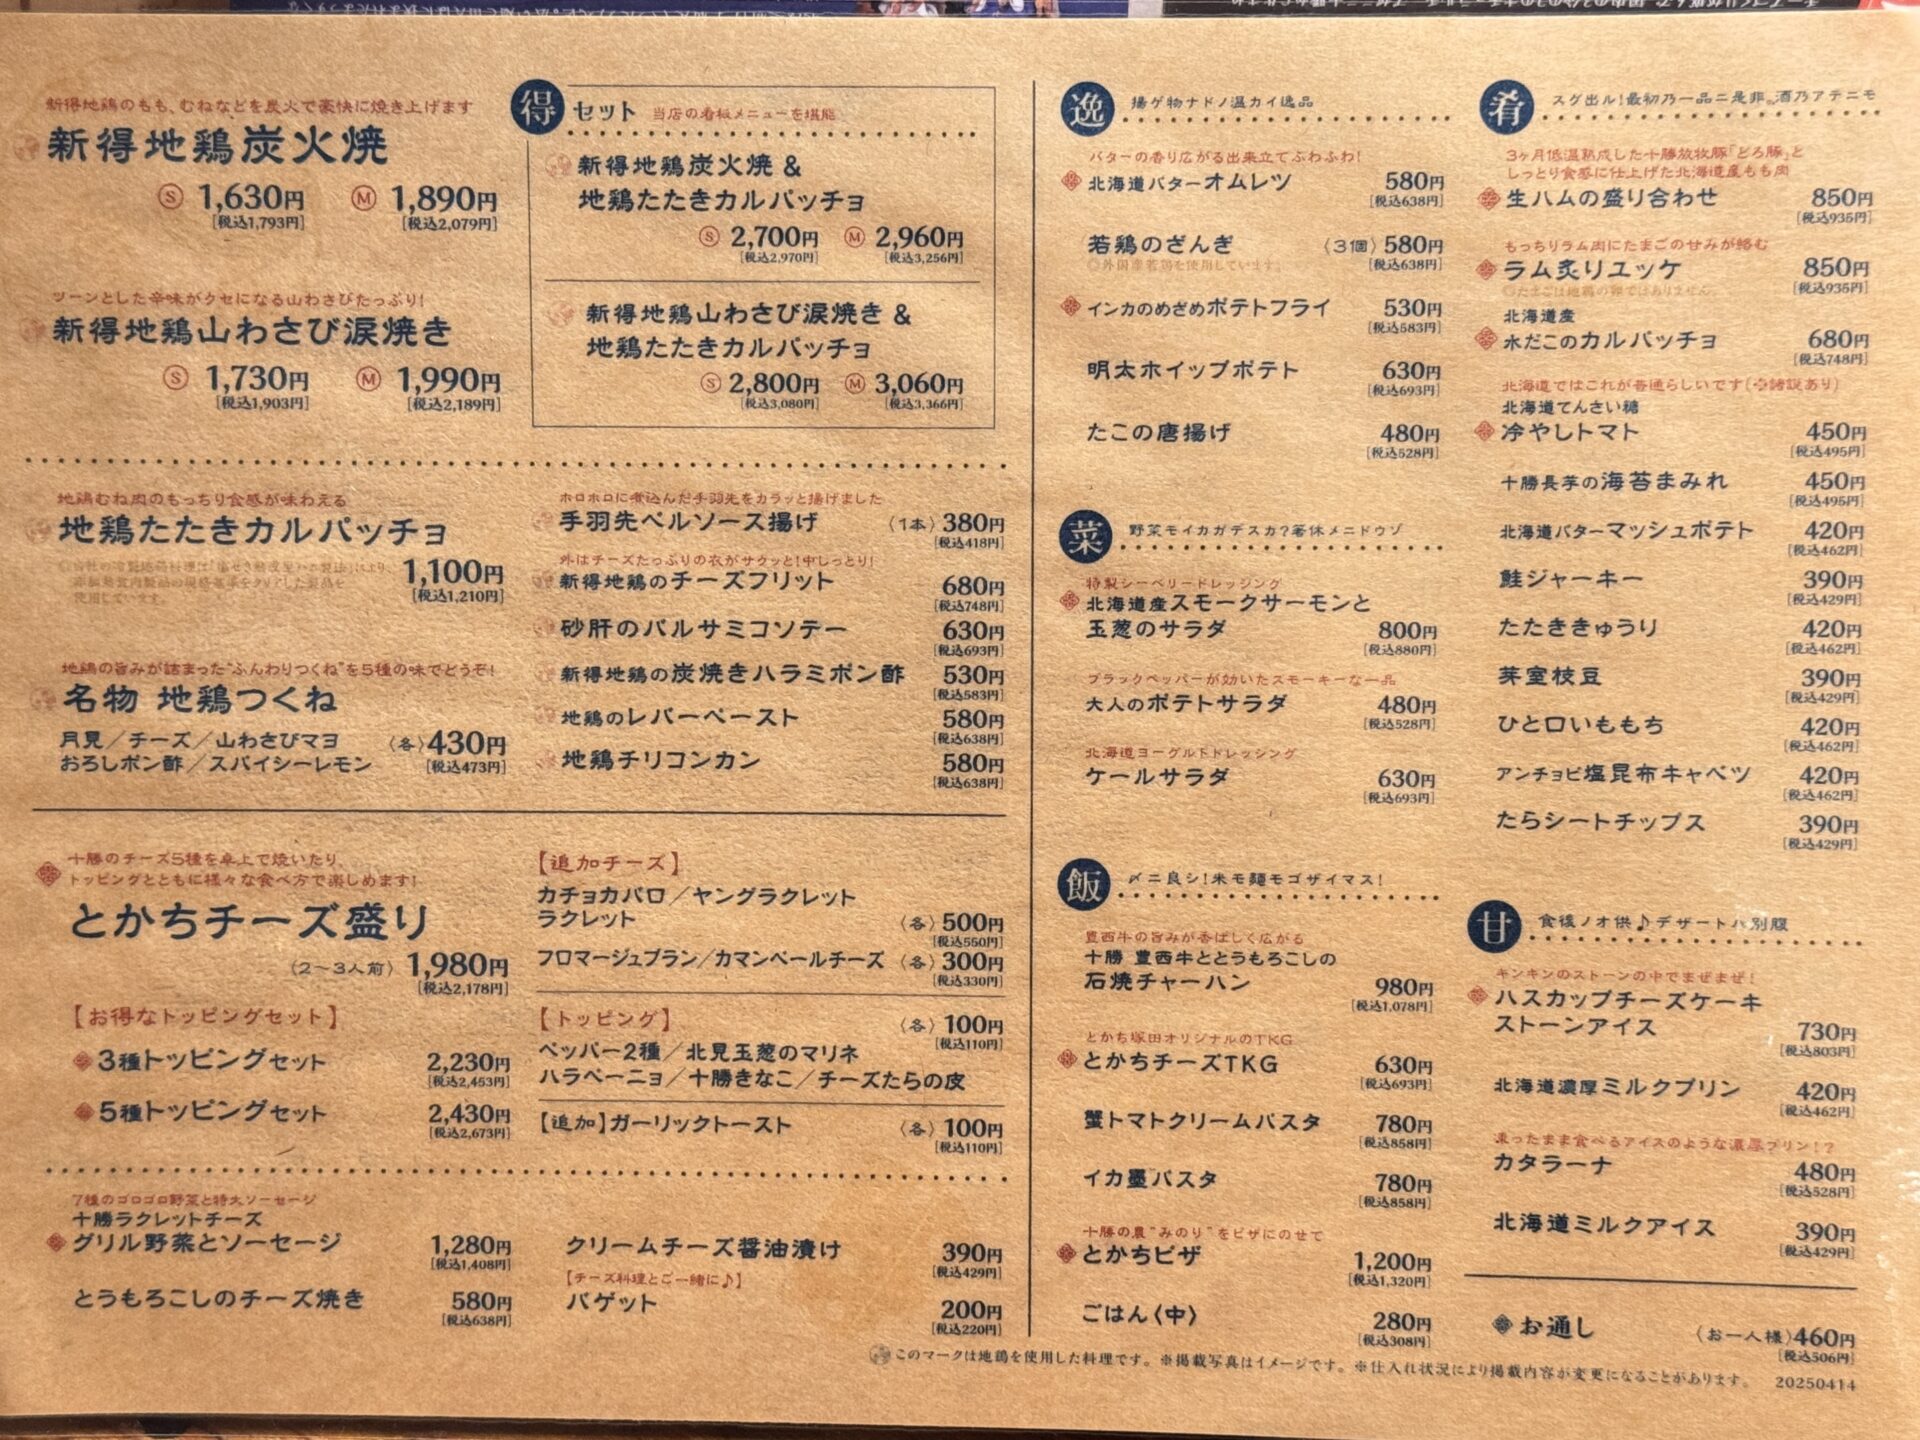 新得地鶏のもも、むねなどを炭火で豪快に焼き上げます
新得地鶏炭火焼
Ⓢ 1,630円 Ⓜ 1,890円
[税込1,793円] [税込2,079円]
ツーンとした辛味がクセになる山わさびたっぷり!
新得地鶏山わさび涙焼き
Ⓢ 1,730円 Ⓜ 1,990円
[税込1,903円] [税込2,189円]
得 セット 当店の看板メニューを堪能
新得地鶏炭火焼 &
地鶏たたきカルパッチョ
Ⓢ 2,700円 Ⓜ 2,960円
[税込2,970円] [税込3,256円]
新得地鶏山わさび涙焼き &
地鶏たたきカルパッチョ
Ⓢ 2,800円 Ⓜ 3,060円
[税込3,080円] [税込3,366円]
地鶏むね肉のもっちり食感が味わえる
地鶏たたきカルパッチョ
1,100円
[税込1,210円]
使用しています。
地鶏の旨みが詰まった“ふんわりつくね”を5種の味でどうぞ!
名物 地鶏つくね
月見/チーズ/山わさびマヨ 〈各〉430円
おろしポン酢/スパイシーレモン [税込473円]
ホロホロに煮込んだ手羽先をカラッと揚げました
手羽先ペルソース揚げ 〈1本〉380円
[税込418円]
外はチーズたっぷりの衣がサクッと!中しっとり!
新得地鶏のチーズフリット 680円
[税込748円]
砂肝のバルサミコソテー 630円
[税込693円]
新得地鶏の炭焼きハラミポン酢 530円
[税込583円]
地鶏のレバーペースト 580円
[税込638円]
地鶏チリコンカン 580円
[税込638円]
十勝のチーズ5種を卓上で焼いたり、
トッピングとともに様々な食べ方で楽しめます!
とかちチーズ盛り
〈2〜3人前〉1,980円
[税込2,178円]
【お得なトッピングセット】
3種トッピングセット 2,230円
[税込2,453円]
5種トッピングセット 2,430円
[税込2,673円]
【追加チーズ】
カチョカバロ/ヤングラクレット
ラクレット 〈各〉500円
[税込550円]
フロマージュブラン/カマンベールチーズ 〈各〉300円
[税込330円]
【トッピング】 〈各〉100円
[税込110円]
ペッパー2種/北見玉葱のマリネ
ハラペーニョ/十勝きなこ/チーズたらの皮
【追加】ガーリックトースト 〈各〉100円
[税込110円]
7種のゴロゴロ野菜と特大ソーセージ
十勝ラクレットチーズ
グリル野菜とソーセージ 1,280円
[税込1,408円]
とうもろこしのチーズ焼き 580円
[税込638円]
クリームチーズ醤油漬け 390円
[税込429円]
【チーズ料理とご一緒に♪】
バゲット 200円
[税込220円]
逸 揚ゲ物ナドノ温カイ逸品
バターの香り広がる出来立てふわふわ!
北海道バターオムレツ 580円
[税込638円]
若鶏のざんぎ 〈3個〉580円
◎外国産若鶏を使用しています。 [税込638円]
インカのめざめポテトフライ 530円
[税込583円]
明太ホイップポテト 630円
[税込693円]
たこの唐揚げ 480円
[税込528円]
菜 野菜モイカガデスカ?箸休メニドウゾ
特製シーベリードレッシング
北海道産スモークサーモンと
玉葱のサラダ 800円
[税込880円]
ブラックペッパーが効いたスモーキーな一品
大人のポテトサラダ 480円
[税込528円]
北海道ヨーグルトドレッシング
ケールサラダ 630円
[税込693円]
飯 〆ニ良シ!米モ麺モゴザイマス!
豊西牛の旨みが香ばしく広がる
十勝 豊西牛ととうもろこしの
石焼チャーハン 980円
[税込1,078円]
とかち塚田オリジナルのTKG
とかちチーズTKG 630円
[税込693円]
蟹トマトクリームパスタ 780円
[税込858円]
イカ墨パスタ 780円
[税込858円]
十勝の農“みのり”をピザにのせて
とかちピザ 1,200円
[税込1,320円]
ごはん〈中〉 280円
[税込308円]
肴 スグ出ル!最初乃一品ニ是非。酒乃アテニモ
3ヶ月低温熟成した十勝放牧豚「どろ豚」と
しっとり食感に仕上げた北海道産もも肉
生ハムの盛り合わせ 850円
[税込935円]
もっちりラム肉にたまごの甘みが絡む
ラム炙りユッケ 850円
◎たまごは地鶏の卵ではありません [税込935円]
北海道産
水だこのカルパッチョ 680円
[税込748円]
北海道ではこれが普通らしいです(※諸説あり)
北海道てんさい糖
冷やしトマト 450円
[税込495円]
十勝長芋の海苔まみれ 450円
[税込495円]
北海道バターマッシュポテト 420円
[税込462円]
鮭ジャーキー 390円
[税込429円]
たたききゅうり 420円
[税込462円]
芽室枝豆 390円
[税込429円]
ひと口いももち 420円
[税込462円]
アンチョビ塩昆布キャベツ 420円
[税込462円]
たらシートチップス 390円
[税込429円]
甘 食後ノオ供♪デザートハ別腹
キンキンのストーンの中でまぜまぜ!
ハスカップチーズケーキ
ストーンアイス 730円
[税込803円]
北海道濃厚ミルクプリン 420円
[税込462円]
凍ったまま食べるアイスのような濃厚プリン!?
カタラーナ 480円
[税込528円]
北海道ミルクアイス 390円
[税込429円]
お通し 〈お一人様〉460円
[税込506円]
このマークは地鶏を使用した料理です。※掲載写真はイメージです。※仕入れ状況により掲載内容が変更になることがあります。 20250414